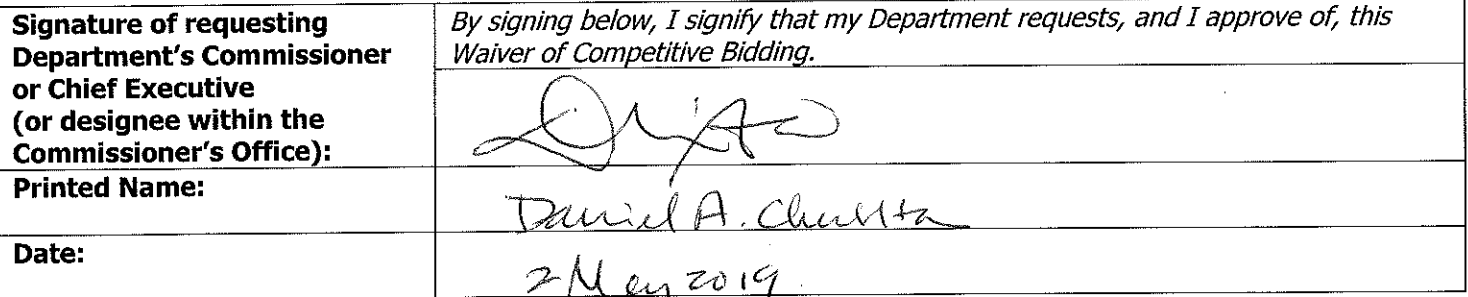 Signature of requesting
Department's Commissioner
or Chief Executive
(or designee within the
Commissioner's Office):
By signing below, I signify that my Department requests, and I approve of, this
Waiver of Competitive Bidding.
Printed Name:
Daniel A.
Date:
2 May 2019